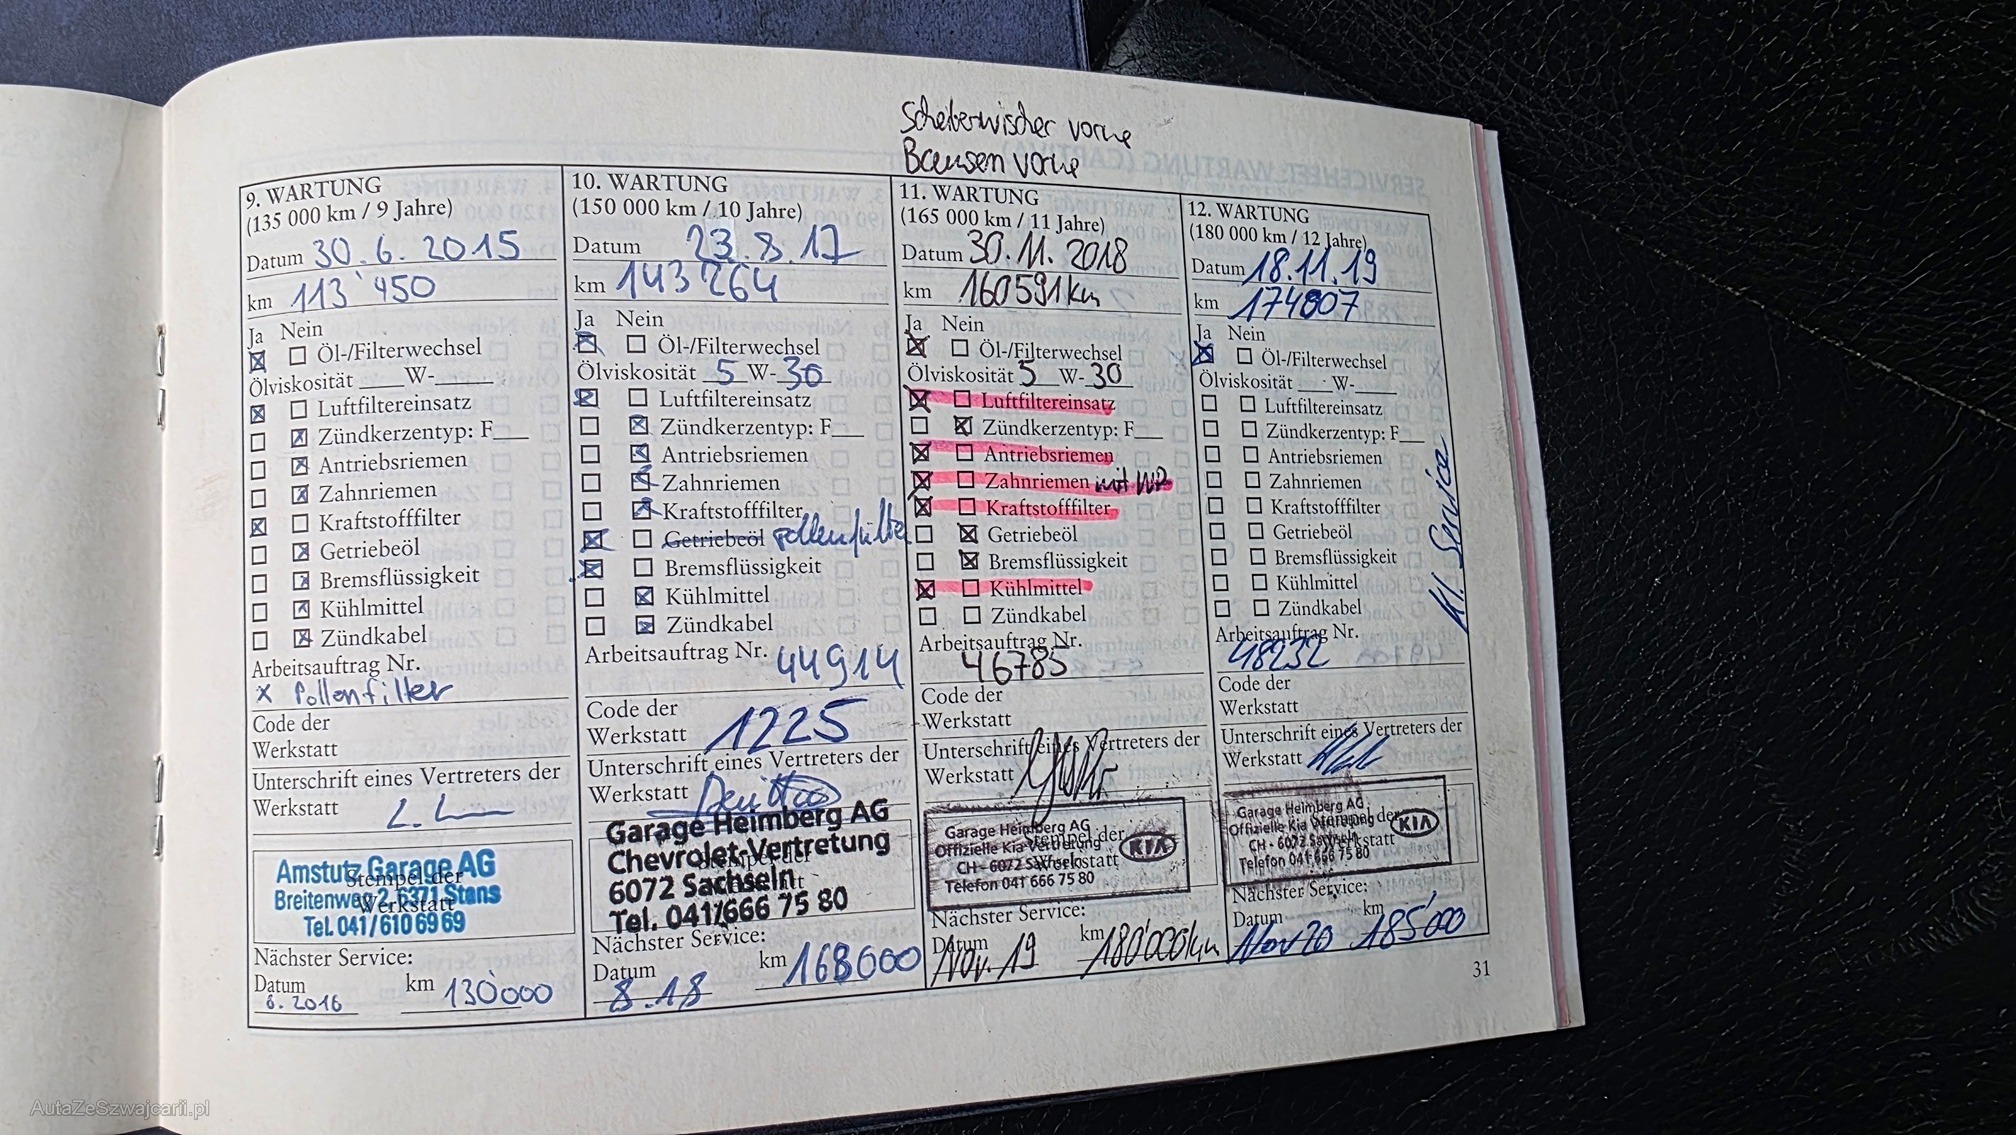 Scheibenwischer vorne
Bremsen vorne
9. WARTUNG
(135 000 km / 9 Jahre)
Datum 30.6.2015
km 113'450
Ja Nein
Öl-/Filterwechsel
Ölviskosität ___W-___
Luftfiltereinsatz
Zündkerzentyp: F__
Antriebsriemen
Zahnriemen
Kraftstofffilter
Getriebeöl
Bremsflüssigkeit
Kühlmittel
Zündkabel
Arbeitsauftrag Nr.
x Pollenfilter
Code der
Werkstatt
Unterschrift eines Vertreters der
Werkstatt
Amstutz Garage AG
Stempel der
Breitenweg 2, 6371 Stans
Werkstatt
Tel. 041/610 69 69
Nächster Service:
Datum km
6.2016 130'000
10. WARTUNG
(150 000 km / 10 Jahre)
Datum 23.8.17
km 143'264
Ja Nein
Öl-/Filterwechsel
Ölviskosität 5 W-30
Luftfiltereinsatz
Zündkerzentyp: F__
Antriebsriemen
Zahnriemen
Kraftstofffilter
Getriebeöl Pollenfilter
Bremsflüssigkeit
Kühlmittel
Zündkabel
Arbeitsauftrag Nr. 44914
Code der
Werkstatt 1225
Unterschrift eines Vertreters der
Werkstatt
Garage Heimberg AG
Chevrolet-Vertretung
6072 Sachseln
Tel. 041/666 75 80
Nächster Service:
Datum km 168000
8.18
11. WARTUNG
(165 000 km / 11 Jahre)
Datum 30.11.2018
km 160591km
Ja Nein
Öl-/Filterwechsel
Ölviskosität 5 W-30
Luftfiltereinsatz
Zündkerzentyp: F__
Antriebsriemen
Zahnriemen mit WP
Kraftstofffilter
Getriebeöl
Bremsflüssigkeit
Kühlmittel
Zündkabel
Arbeitsauftrag Nr.
46785
Code der
Werkstatt
Unterschrift eines Vertreters der
Werkstatt
Garage Heimberg AG
Stempel der
Offizielle Kia Vertretung
KIA
CH - 6072 Sachseln
Werkstatt
Telefon 041 666 75 80
Nächster Service:
Datum km
Nov. 19 180'000km
12. WARTUNG
(180 000 km / 12 Jahre)
Datum 18.11.19
km 174807
Ja Nein
Öl-/Filterwechsel
Ölviskosität ___W-___
Luftfiltereinsatz
Zündkerzentyp: F__
Antriebsriemen
Zahnriemen
Kraftstofffilter
Getriebeöl
Bremsflüssigkeit
Kühlmittel
Zündkabel
Kl. Service
Arbeitsauftrag Nr.
48232
Code der
Werkstatt
Unterschrift eines Vertreters der
Werkstatt
Garage Heimberg AG
Stempel der
Offizielle Kia Vertretung
KIA
CH - 6072 Sachseln
Werkstatt
Telefon 041 666 75 80
Nächster Service:
Datum km
Nov 20 185'000
31
AutaZeSzwajcarii.pl